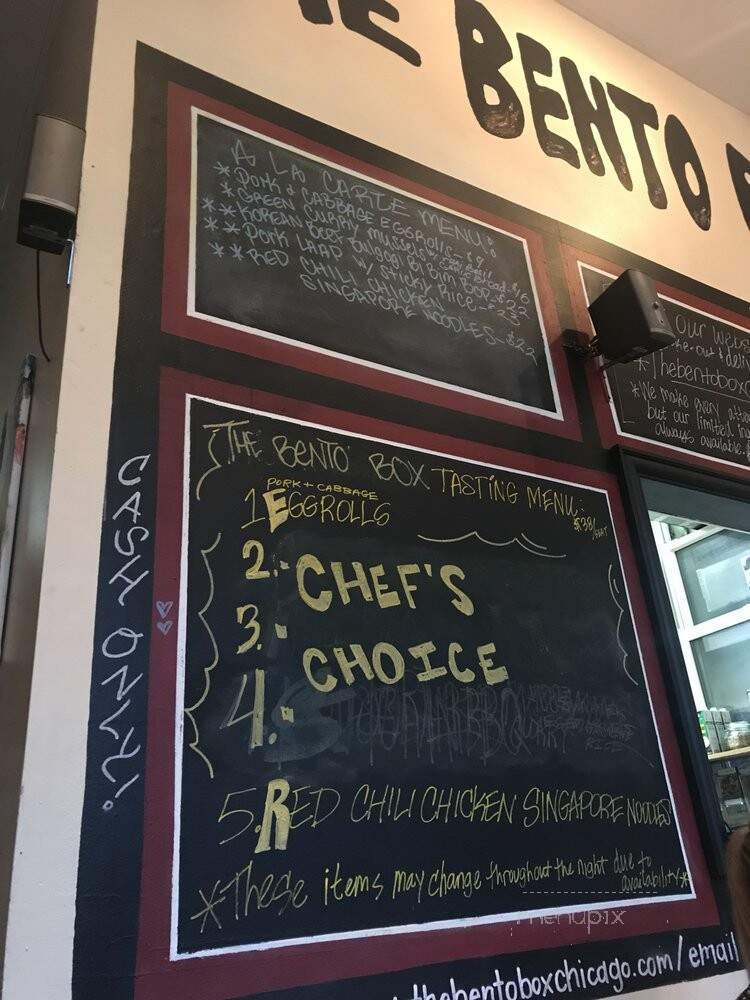 THE BENTO B
A LA CARTE MENU:
*PORK & CABBAGE EGGROLLS-$9
*GREEN CURRY MUSSELS W/ BREAD $16
**KOREAN BEEF BULGOGI BI BIM BOP-$22
**PORK LAAP W/ STICKY RICE-$23
**RED CHILI CHICKEN
SINGAPORE NOODLES-$22
our webs
*Thebentobox
*We make every att
but our limited
always available.
CASH ONLY!
THE BENTO BOX TASTING MENU:
$38/
PORK + CABBAGE
1. EGGROLLS
2. CHEF'S
3.
CHOICE
4.
5. RED CHILI CHICKEN SINGAPORE NOODLES
*These items may change throughout the night due to
availability*
menupix
thebentoboxchicago.com/email